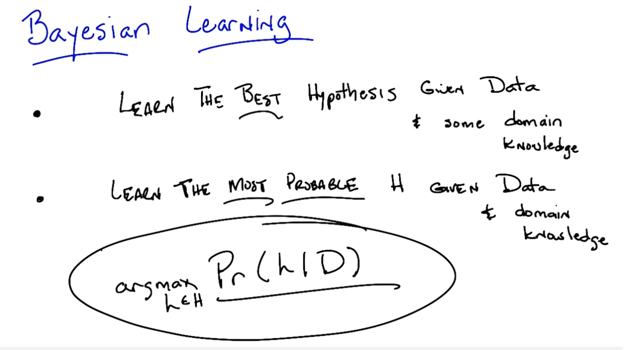 Bayesian Learning
• LEARN THE BEST Hypothesis Given Data
& some domain
knowledge
• LEARN THE MOST PROBABLE H GIVEN Data
& domain
knowledge
argmax Pr(h|D)
h∈H